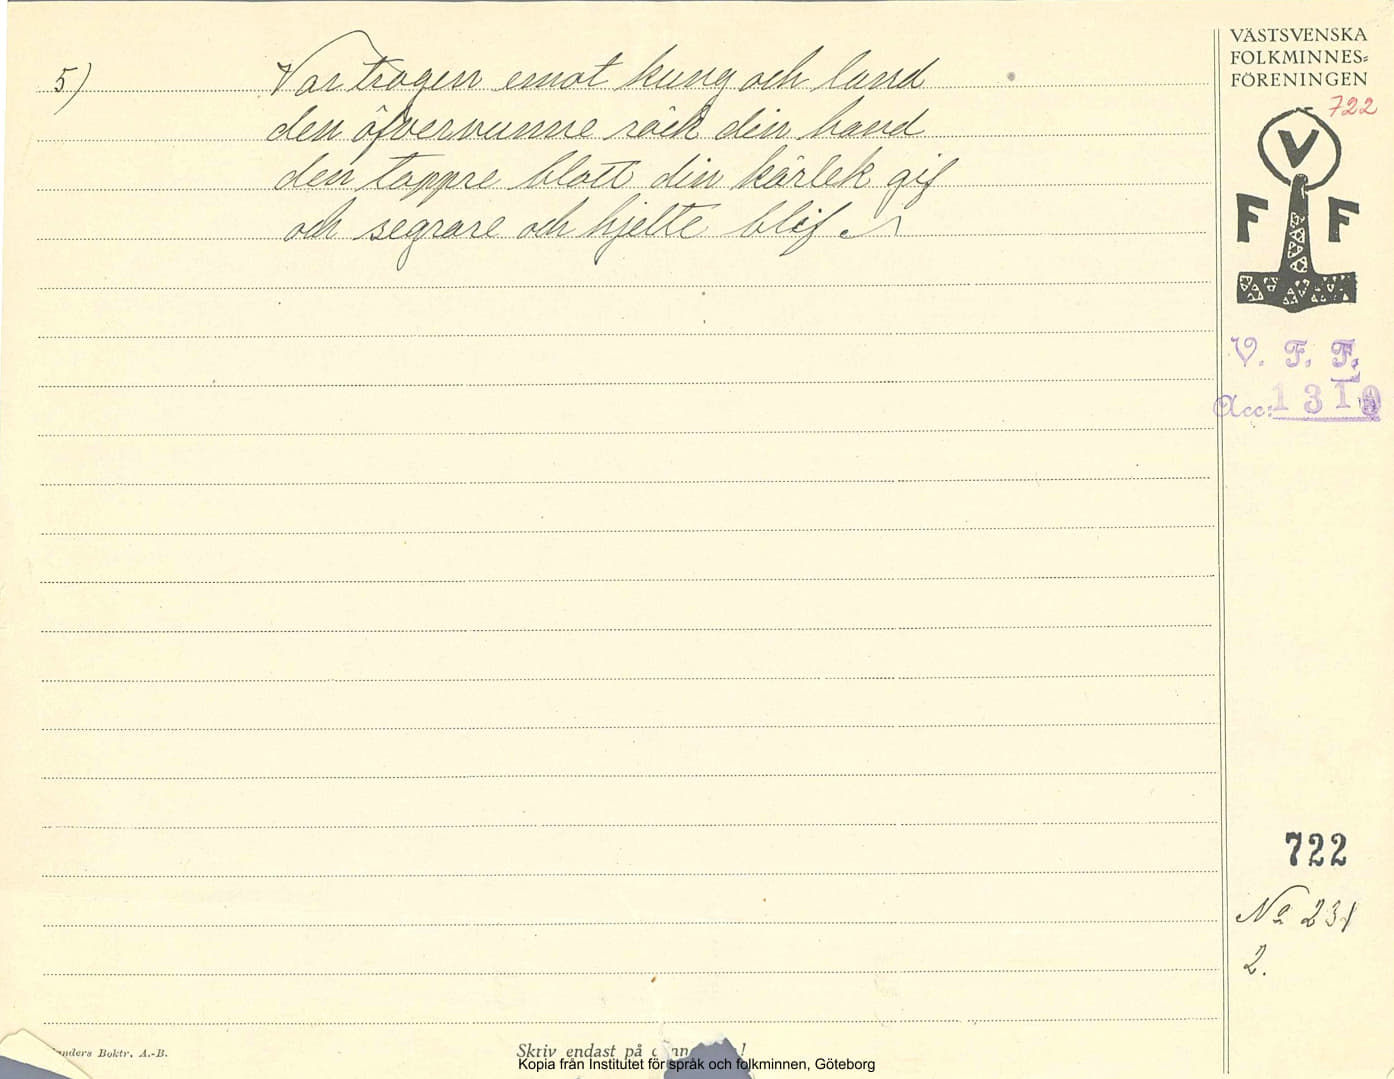 5) Var trogen emot kung och land
den öfvervunne räck din hand
den tappre blott din kärlek gif
och segrare och hjelte blif.
VÄSTSVENSKA
FOLKMINNES=
FÖRENINGEN
722
V
F F
V. F. F.
Acc: 1319
722
No 231
2.
anders Boktr. A.-B.
Skriv endast på
Kopia från Institutet för språk och folkminnen, Göteborg